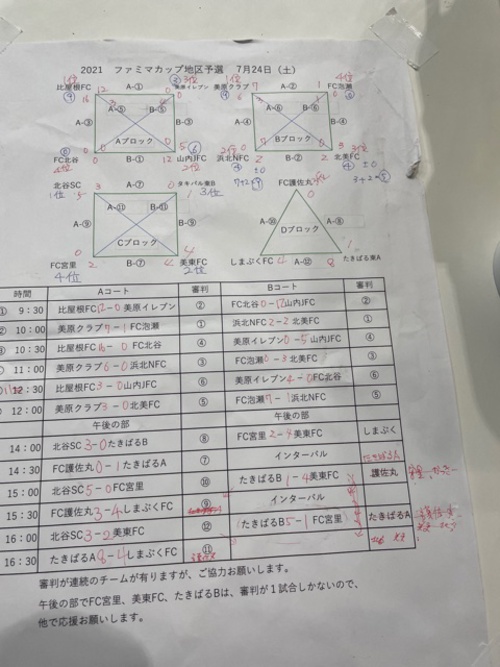 2021　ファミマカップ地区予選　7月24日（土）
1位
比屋根FC 12 A-① 0 美原イレブン 3位
1位 美原クラブ 7 A-② 1 FC泡瀬 4位
A-⑤ B-⑤
A-⑥ B-⑥
A-③ B-③
A-④ B-④
Aブロック
Bブロック
FC北谷 0 B-① 12 山内FC 2位
浜北NFC 2 B-② 2 北美FC
北谷SC 3 A-⑦ 0
1位
3位
FC護佐丸
A-⑪ B-⑪
A-⑨ B-⑨
A-⑩ A-⑧
Cブロック
Dブロック
FC宮里 2 B-⑦ 4 美東FC
しまぶくFC 4 A-⑫ 8 たきばる東A
4位 2位
時間 Aコート 審判 Bコート 審判
9：30 比屋根FC12-0美原イレブン ② FC北谷0-12山内JFC ②
② 10：00 美原クラブ7-1FC泡瀬 ① 浜北NFC2-2北美FC ①
10：30 比屋根FC16-0FC北谷 ④ 美原イレブン0-5山内JFC ④
11：00 美原クラブ6-0浜北NFC ③ FC泡瀬0-3北美FC ③
12：30 比屋根FC3-0山内JFC ⑥ 美原イレブン4-0FC北谷 ⑥
12：00 美原クラブ3-0北美FC ⑤ FC泡瀬7-1浜北NFC ⑤
午後の部 午後の部
14：00 北谷SC3-0たきばるB ⑧ FC宮里2-4美東FC しまぶく
14：30 FC護佐丸0-1たきばるA ⑦ インターバル たきばるA
15：00 北谷SC5-0FC宮里 ⑩ たきばるB1-4美東FC 護佐丸
15：30 FC護佐丸3-4しまぶくFC ⑨ インターバル
16：00 北谷SC3-2美東FC ⑫ たきばるB5-1FC宮里 たきばるA
16：30 たきばるA8-4しまぶくFC ⑪
審判が連続のチームが有りますが、ご協力お願いします。
午後の部でFC宮里、美東FC、たきばるBは、審判が１試合しかないので、
他で応援お願いします。